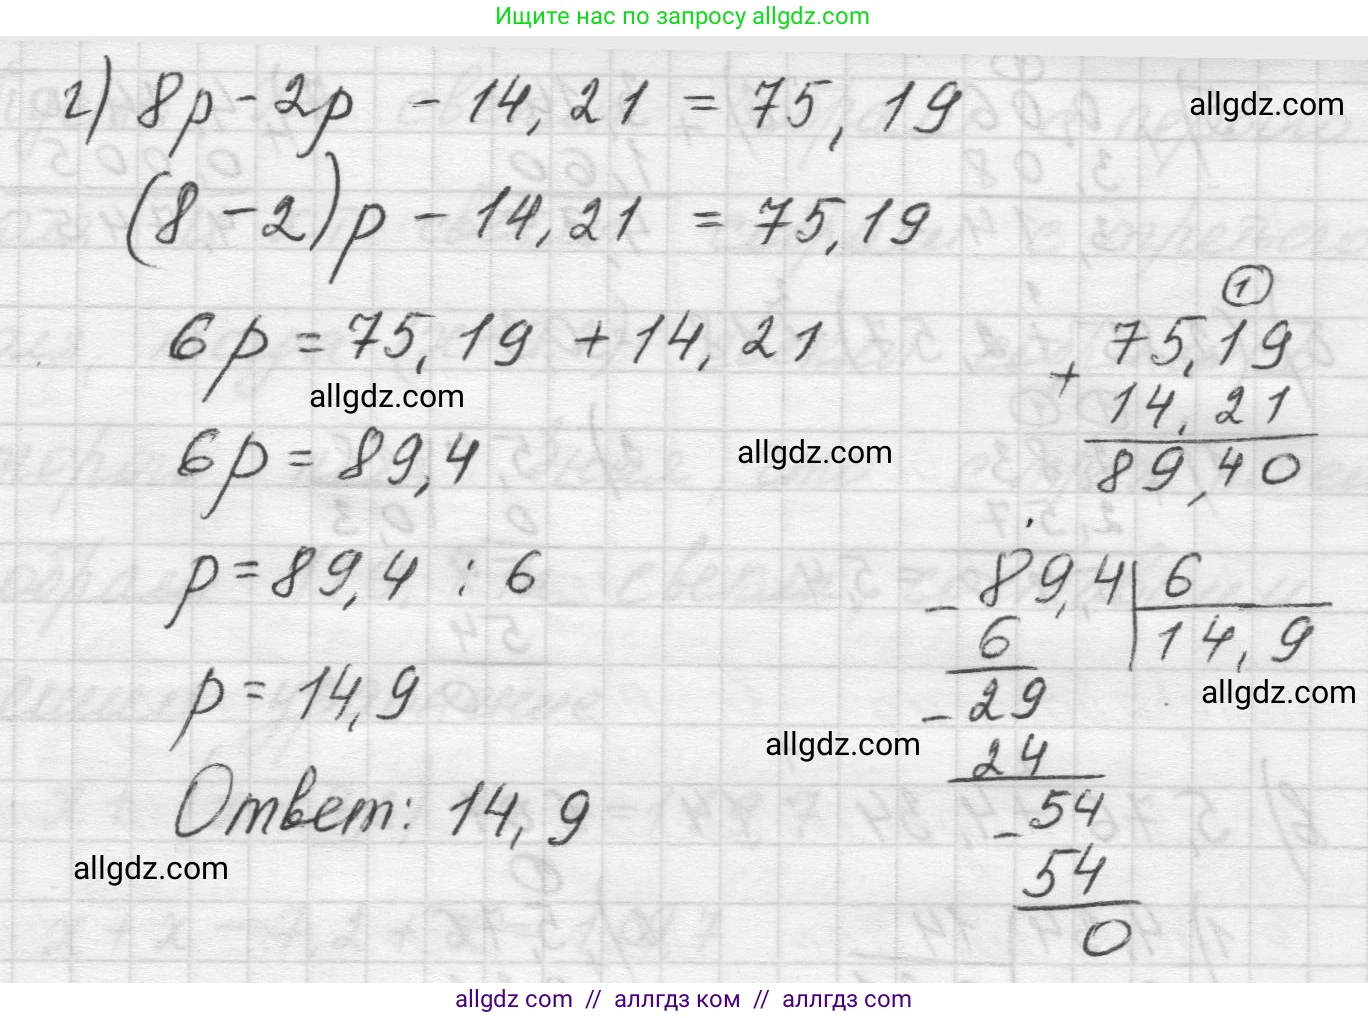 Ищите нас по запросу allgdz.com
г) 8p - 2p - 14,21 = 75,19
allgdz.com
(8 - 2)p - 14,21 = 75,19
6p = 75,19 + 14,21
allgdz.com
6p = 89,4
allgdz.com
p = 89,4 : 6
p = 14,9
Ответ: 14,9
allgdz.com
1
75,19
+
14,21
89,40
- 89,4 6
6 14,9
allgdz.com
- 29
allgdz.com
24
- 54
54
0
allgdz com // аллгдз ком // аллгдз com